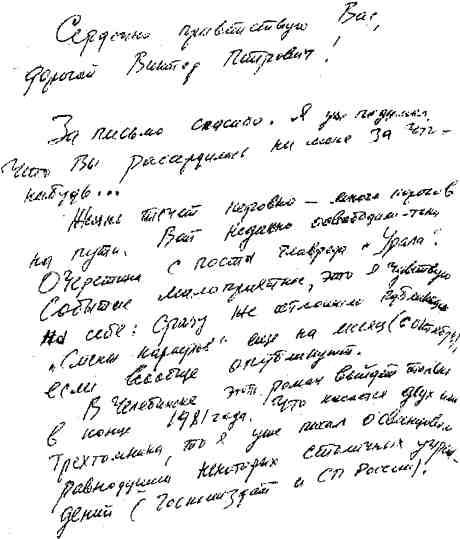 Сердечно приветствую Вас,
дорогой Виктор Петрович!
За письмо спасибо. Я уже подумал,
что Вы рассердились на меня за что-
нибудь...
Жизнь течет неровно — много порогов
на пути. Вот недавно освободили-таки
Очеретина с поста главреда "Урала".
Событие малоприятное, это я чувствую
на себе: сразу же отложили публикацию
"Смены караулов" еще на месяц (с октября),
если вообще опубликуют.
В Челябинске этот роман выйдет только
в конце 1981 года. Что касается двух или
трехтомника, то я уже писал о
равнодушии некоторых столичных учреж-
дений (Госкомиздат и СП России).